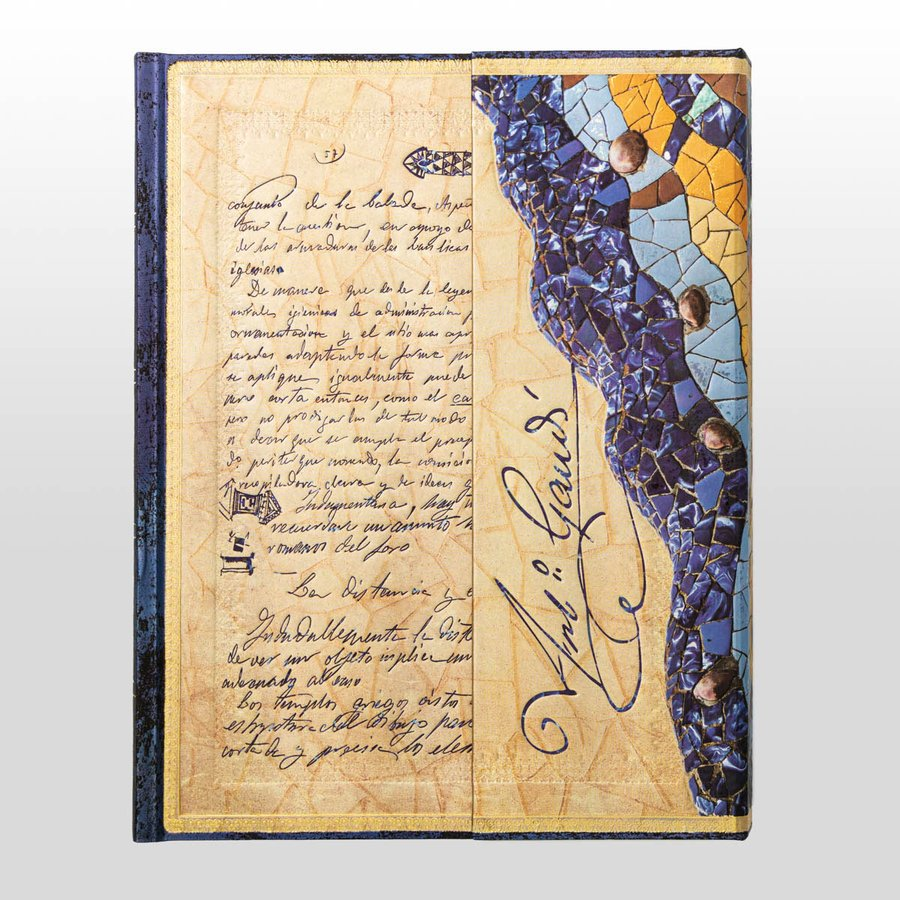 57
conjunto de la balada, Aspe
tener la cuestion, en apoyo de
de las de las basilicas
iglesias
De manera que desde la leyen
morales igienicas de administracion p
ornamentacion y el sitio mas apr
paredes adaptando la forma pr
se aplique igualmente puede
pero corta entonces, como el ca
pero no prodigarlas de tal modo
a decir que se cumpla el precep
do que nomando, la concicio
recopiladora clara y de ideas q
Indumentaria, hay
recuerdase un asunto
romanos del foro
La distancia y e
Indudablemente la dist
de ver un objeto implica un
adecuado al caso
Los templos griegos
estructura del dibujo para
cortada y precisa los elem
Antº. Gaudí